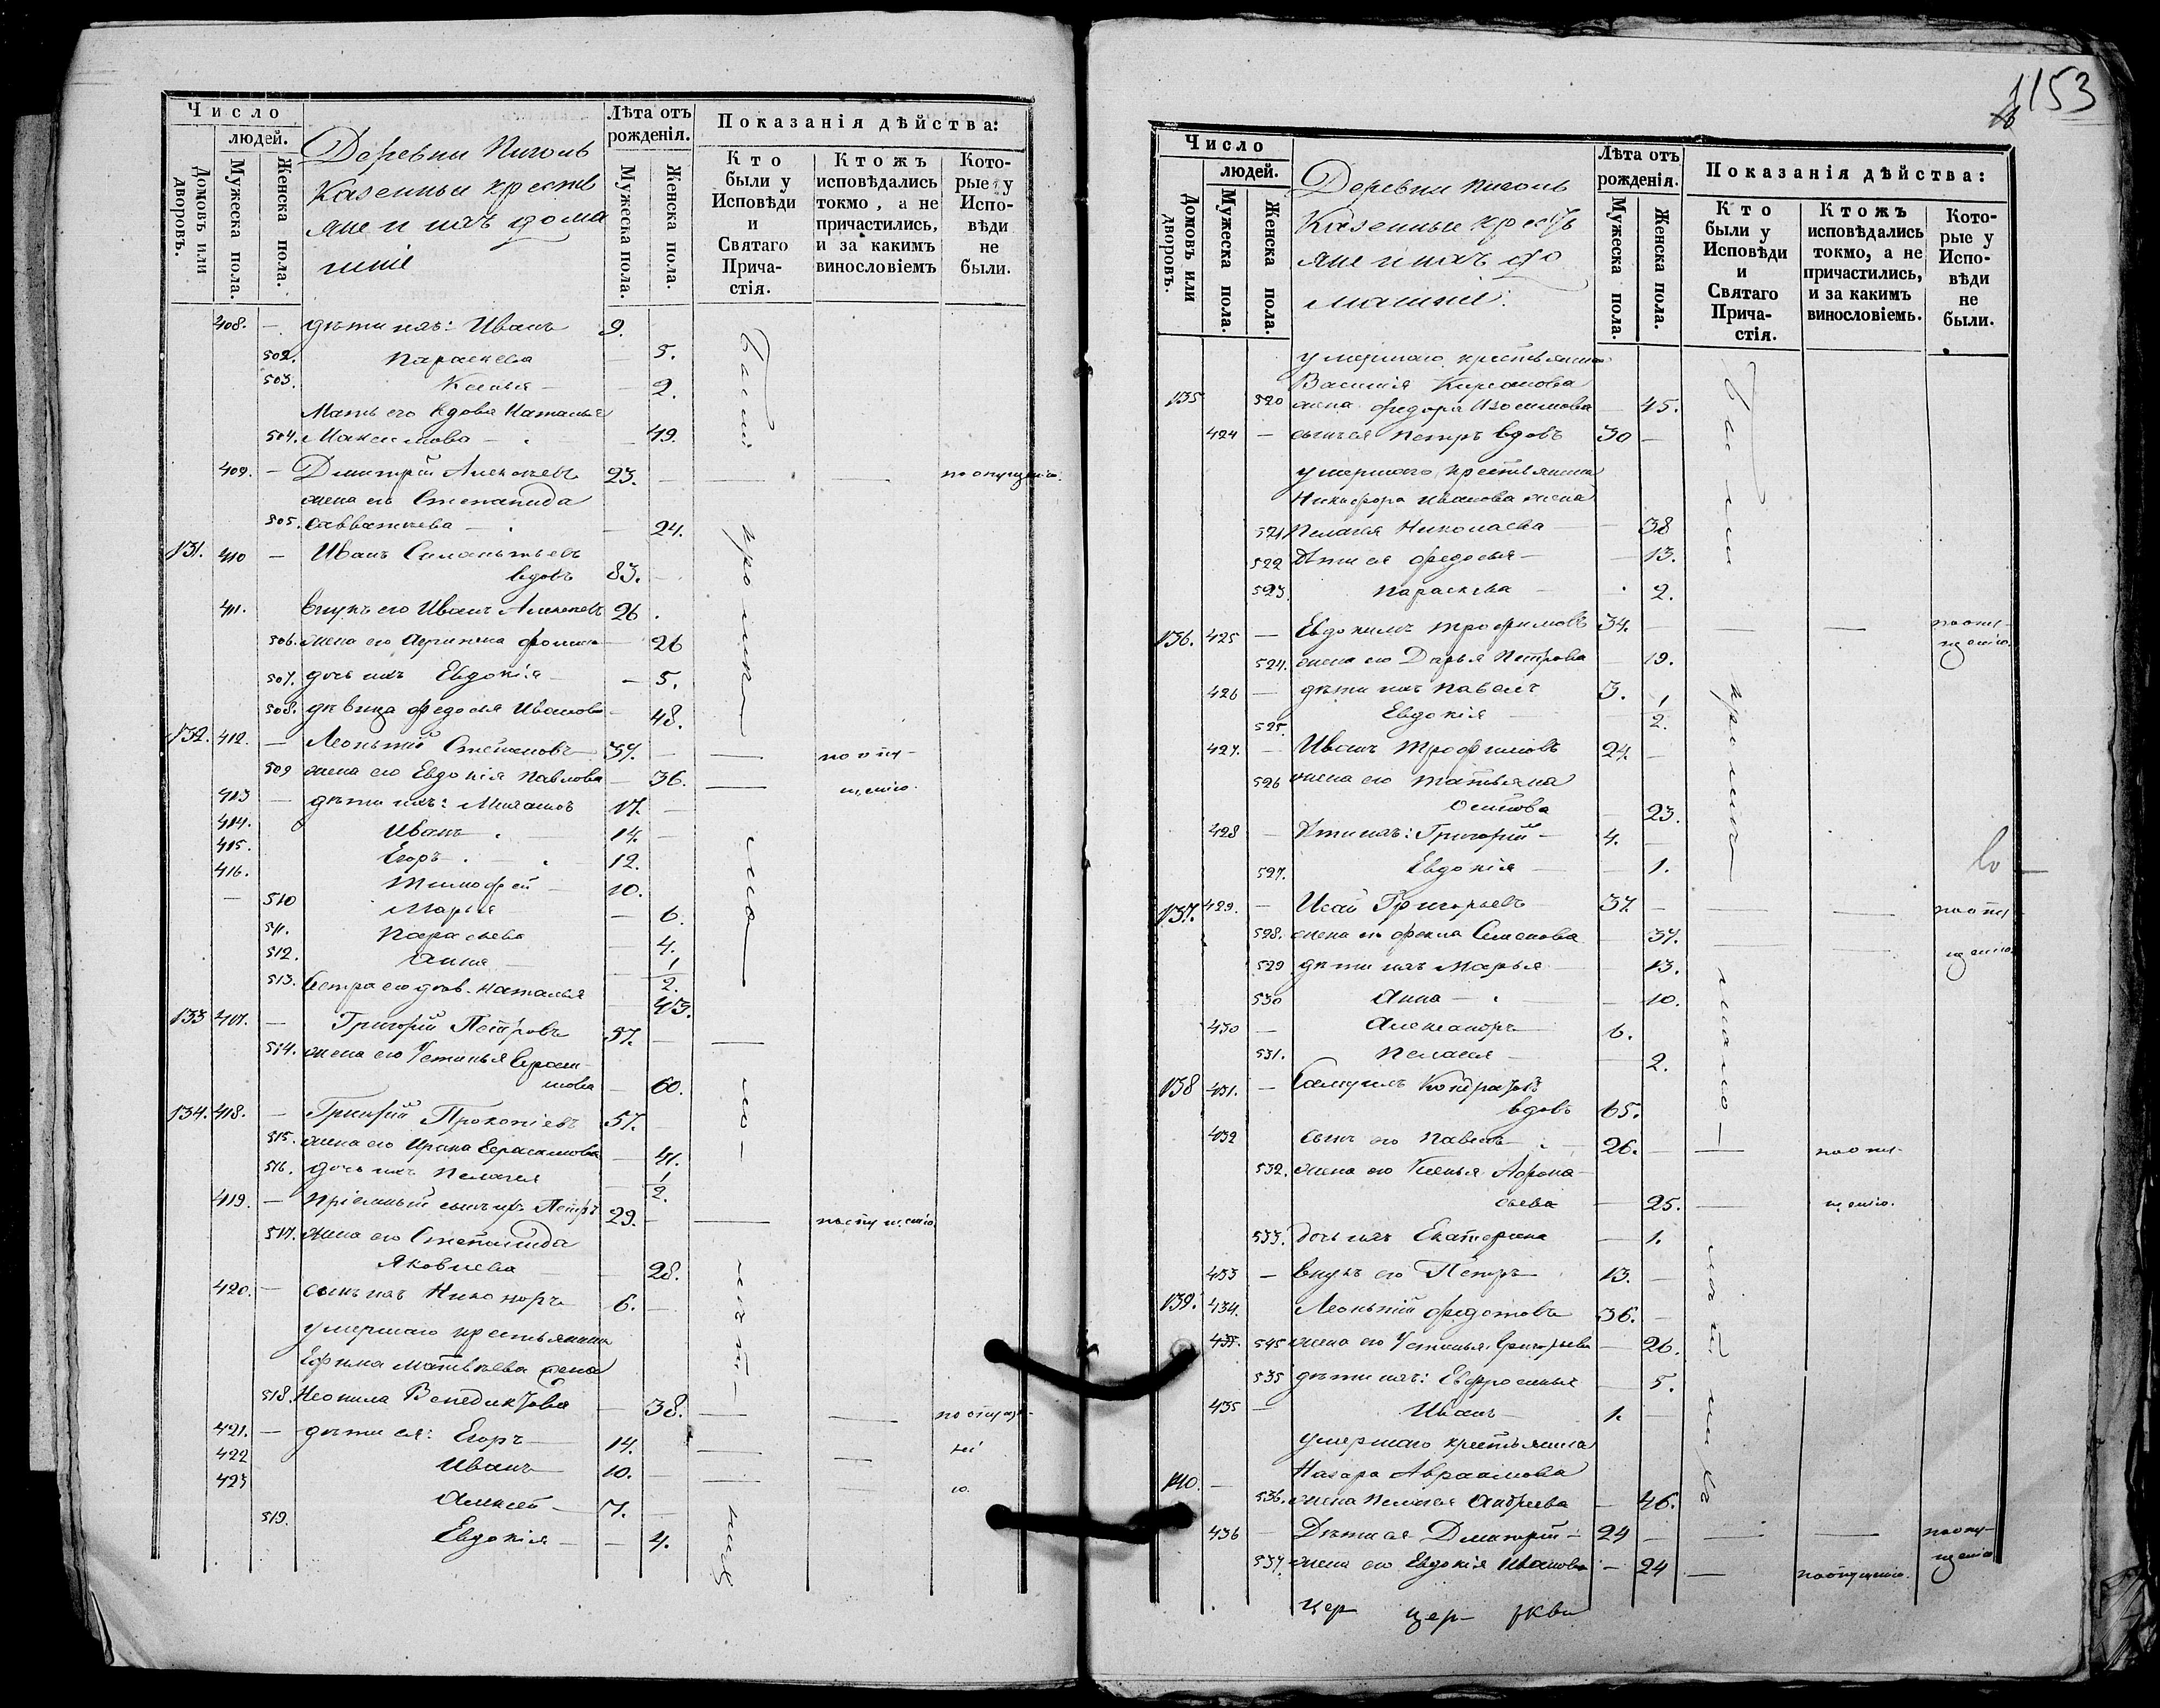 Число
людей.
Домовъ или дворовъ.
Мужеска пола.
Женска пола.
Деревни Пиголь
Казенныи крестья
яне и ихъ дома
шніе
Лѣта отъ рожденія.
Мужеска пола.
Женска пола.
Показанія дѣйства:
Кто были у Исповѣди и Святаго Прича-стія.
Ктожъ исповѣдались токмо, а не причастились, и за какимъ винословіемъ
Кото-рые у Испо-вѣди не были.
408. — дѣти ихъ: Иванъ 9.
502. Параскева — 5.
503. Ксенья — 2.
Мать его вдова Наталья
504. Максимова — 49.
409. — Димитрій Алексѣевъ 23. — по опущенію.
жена его Степанида
505. Савватѣева — 24.
131. 410 — Иванъ Силантьевъ
вдовъ 83.
411. внукъ его Иванъ Алексѣевъ 26
506. жена его Агрипина Фомина — 26
507. дочь ихъ Евдокія — 5.
508. дѣвица Федосья Иванова — 48.
132. 412. — Леонтій Степановъ 37. — по опу-
509 жена его Евдокія Павлова — 36. — щенію.
413 — дѣти ихъ: 17.
414. Иванъ 14.
415. Егоръ 12.
416. Тимофей 10.
510 Марья — 6.
511. Параскева — 4.
512. Анна — 1/2.
513. Сестра его дѣв. Наталья — 43.
133 417. — Григорій Петровъ 57.
514. жена его Устинья Ефим
мова — 60.
134. 418. — Григорій Прокопіевъ 57.
515. жена его Ирина Герасимова — 41.
516. дочь ихъ Пелагея — 1/2.
419. — пріемный сынъ ихъ Петръ 29. — по опущенію.
517. жена его Степанида
Яковлева — 28.
420. — сынъ ихъ Никаноръ 6.
умершаго крестьянина
Ефима Матвѣева жена
518. Неонила Венедиктова — 38. — по опуще-
421. — дѣти ея: Егоръ 14. — ні
422 Иванъ 10. — ю.
423 Алексѣй 7.
519. Евдокія — 4.
1153
Число
людей.
Домовъ или дворовъ.
Мужеска пола.
Женска пола.
Деревни Пиголь
Казенныи кресть
яне и ихъ до
машніе.
Лѣта отъ рожденія.
Мужеска пола.
Женска пола.
Показанія дѣйства:
Кто были у Исповѣди и Святаго Прича-стія.
Ктожъ исповѣдались токмо, а не причастились, и за какимъ винословіемъ.
Кото-рые у Испо-вѣди не были.
умершаго крестьянина
Василія Кирсанова
135 520 жена Федора Изосимова — 45.
424 — сынъ ея Петръ вдовъ 30 —
умершаго крестьянина
Никифора Иванова жена
521 Пелагея Николаева — 38
522 Дѣти ея Федосья — 13.
523. Параскева 2.
136. 425 — Евдокимъ Трофимовъ 34. — по опу-
524. жена его Дарья Петрова — 19. щенію.
426 — дѣти ихъ Павелъ 3.
525. Евдокія — 1/2.
427. — Иванъ Трофимовъ 24. —
526 жена его Татьяна
Осипова — 23.
428 — Дѣти ихъ: Григорій 4.
527. Евдокія — 1.
137. 429. — Исай Григорьевъ 37 — по опу
528. жена его Фекла Семенова — 37. щенію
529 дѣти ихъ Марья — 13.
530 Анна — 10.
430 — Александръ 6.
531. Пелагея — 2.
138 431. — Самуилъ Кондратьевъ
вдовъ 65.
432 сынъ его Павелъ 26. — по опу-
532. жена его Ксенья Афона-
сьева — 25. — щенію.
533. дочь ихъ Екатерина — 1.
433 — внукъ его Петръ 13. —
139. 434. Леонтій Федотовъ 36. —
435. 545 жена его Устинья Григорьева — 26.
535 дѣти ихъ: Евфросинья — 5.
435 — Иванъ 1. —
умершаго крестьянина
Назара Авраамова
140. — 536. жена Пелагея Андреева — 46.
436 — Дѣти ея Димитрій 24 — по опу-
537. жена его Евдокія Иванова — 24 — по опущенію. щенію
цер цер- ркви